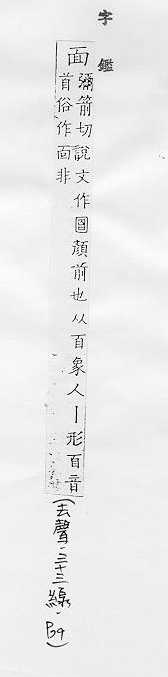 字鑑
面
彌箭切說文作顔前也从百象人丨形百音
首俗作面非
(去聲.三十三線.